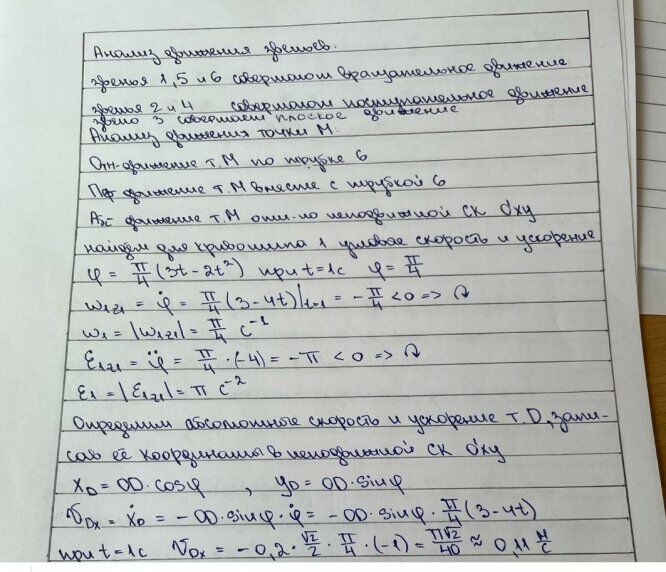 Анализ движения звеньев.
звенья 1, 5 и 6 совершают вращательное движение
звенья 2 и 4 совершают поступательное движение
звено 3 совершает плоское движение
Анализ движения точки М:
Отн. движение т. М по трубке 6
Пер движение т. М вместе с трубкой 6
Абс движение т. М отн-но неподвижной СК O'xy
найдем для кривошипа 1 угловое скорость и ускорение
φ = π/4 (3t - 2t²) при t = 1c φ = π/4
ω1z1 = φ̇ = π/4 (3 - 4t)|t=1 = -π/4 < 0 => ↷
ω1 = |ω1z1| = π/4 c⁻¹
ε1z1 = φ̈ = π/4 · (-4) = -π < 0 => ↷
ε1 = |ε1z1| = π c⁻²
Определим абсолютные скорость и ускорение т. D, запи-
сав её координаты в неподвижной СК O'xy
xD = OD · cosφ , yD = OD · sinφ
vDx = ẋD = -OD · sinφ · φ̇ = -OD · sinφ · π/4 (3 - 4t)
при t = 1c vDx = -0,2 · √2/2 · π/4 · (-1) = π√2/40 ≈ 0,11 м/с